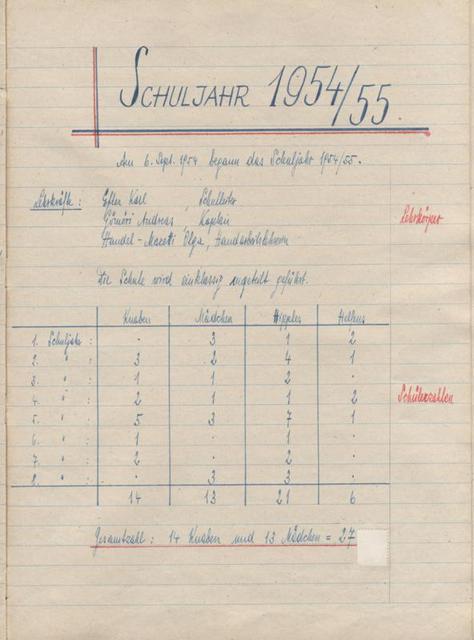 SCHULJAHR 1954/55
Am 6. Sept. 1954 begann das Schuljahr 1954/55.
Lehrkräfte: Karl, Schulleiter
Lehrkörper
Andreas, Kaplan
Handel-Mazetti Olga, Handarbeitslehrerin
Die Schule wird einklassig ungeteilt geführt.
Knaben Mädchen Hipples Hellens
1. Schuljahr: . 3 1 2
2. " : 3 2 4 1
3. " : 1 1 2 .
4. " : 2 1 1 2
Schülerzahlen
5. " : 5 3 7 1
6. " : 1 . 1 .
7. " : 2 . 2 .
8. " : . 3 3 .
14 13 21 6
Gesamtzahl: 14 Knaben und 13 Mädchen = 27